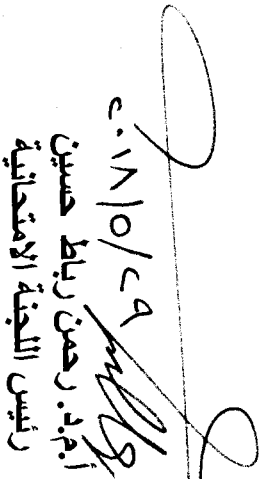 ٢٠١٨/٥/٢٩
أ.م.د. رحمن رباط حسين
رئيس اللجنة الامتحانية